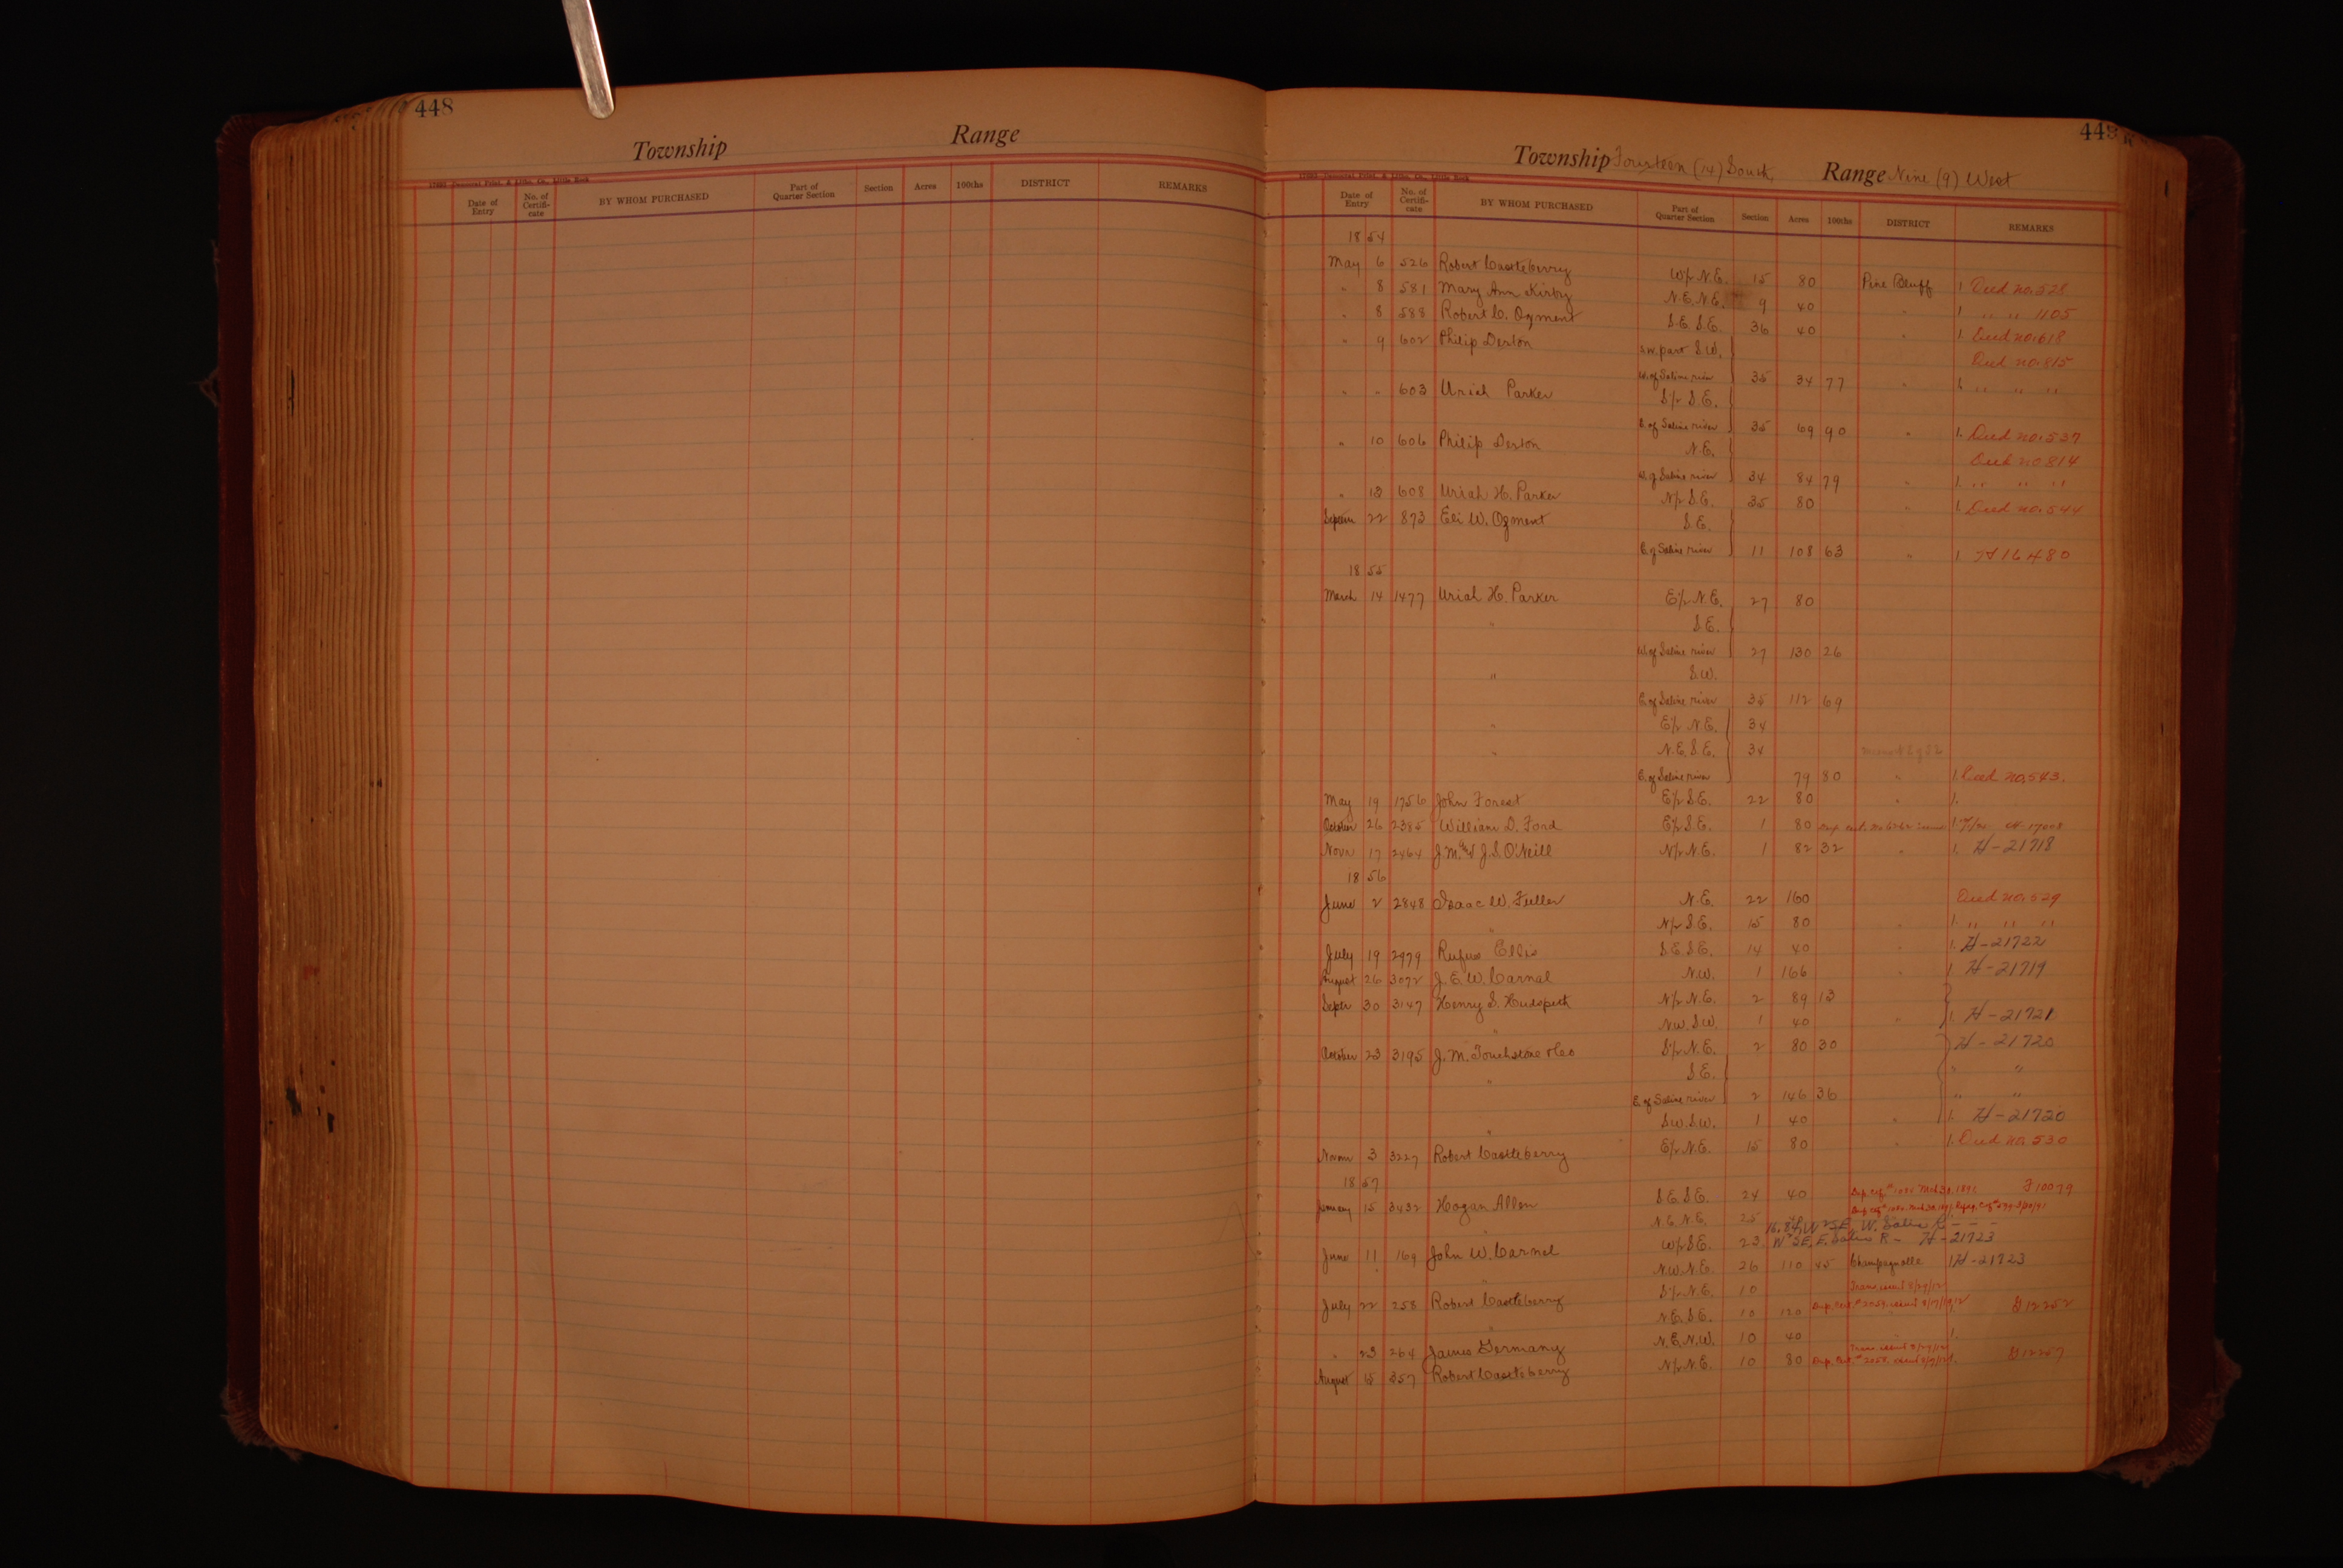 448
Township Range
Date of Entry No. of Certifi-cate BY WHOM PURCHASED Part of Quarter Section Section Acres 100ths DISTRICT REMARKS
449
Township Fourteen (14) South, Range Nine (9) West
Date of Entry No. of Certifi-cate BY WHOM PURCHASED Part of Quarter Section Section Acres 100ths DISTRICT REMARKS
1854
May 6 526 Robert Castleberry W½ N.E. 15 80 Pine Bluff 1 Deed no. 528
" 8 581 Mary Ann Kirby N.E. N.E. 9 40 " 1 " " 1105
" 8 588 Robert C. Ogment S.E. S.E. 36 40 " 1. Deed no. 618
" 9 602 Philip Derton S.W. part S.W. Deed no. 815
W. of Saline river 35 34 77 " 1. " " "
" " 603 Uriah Parker S½ S.E.
E. of Saline river 35 69 90 " 1. Deed no. 537
" 10 606 Philip Derton N.E. Deed no 814
W. of Saline river 34 84 79 " 1. " " "
" 12 608 Uriah H. Parker N½ S.E. 35 80 " 1. Deed no. 544
Septem 22 873 Eli W. Ogment S.E.
E. of Saline river 11 108 63 " 1 H 16480
1855
March 14 1477 Uriah H. Parker E½ N.E. 27 80
" S.E.
W. of Saline river 27 130 26
" S.W.
E. of Saline river 35 112 69
" E½ N.E. 34
" N.E. S.E. 34
E. of Saline river 79 80 " 1. Deed no. 543.
May 19 1756 John Forest E½ S.E. 22 80 " 1.
October 26 2385 William D. Ford E½ S.E. 1 80
Novr 17 2464 J. M. & J. S. O'Neill N½ N.E. 1 82 32 " 1. H-21718
1856
June 2 2848 Isaac W. Fuller N.E. 22 160 Deed no. 529
" N½ S.E. 15 80 " 1. " " "
July 19 2979 Rufus Ellis S.E. S.E. 14 40 " 1. H-21722
August 26 3072 J. E. W. Carnal N.W. 1 166 " 1 H-21719
Septr 30 3147 Henry S. Hudspeth N½ N.E. 2 89 13
" N.W. S.W. 1 40 " 1. H-21721
October 23 3195 J. M. Touchstone & Co S½ N.E. 2 80 30 H-21720
" S.E. " "
E. of Saline river 2 146 36 " "
" S.W. S.W. 1 40 " 1. H-21720
Novm 3 3227 Robert Castleberry E½ N.E. 15 80 " 1. Deed no. 530
1857
January 15 3432 Hogan Allen S.E. S.E. 24 40
" N.E. N.E. 25
June 11 169 John W. Carnal W½ S.E. 23 W½ SE, E. Salin R - H-21723
" N.W. N.E. 26 110 45 Champagnolle 1 H-21723
July 22 258 Robert Castleberry S½ N.E. 10
" N.E. S.E. 10 120
" 23 264 James Germany N.E. N.W. 10 40 " 1.
August 15 357 Robert Castleberry N½ N.E. 10 80